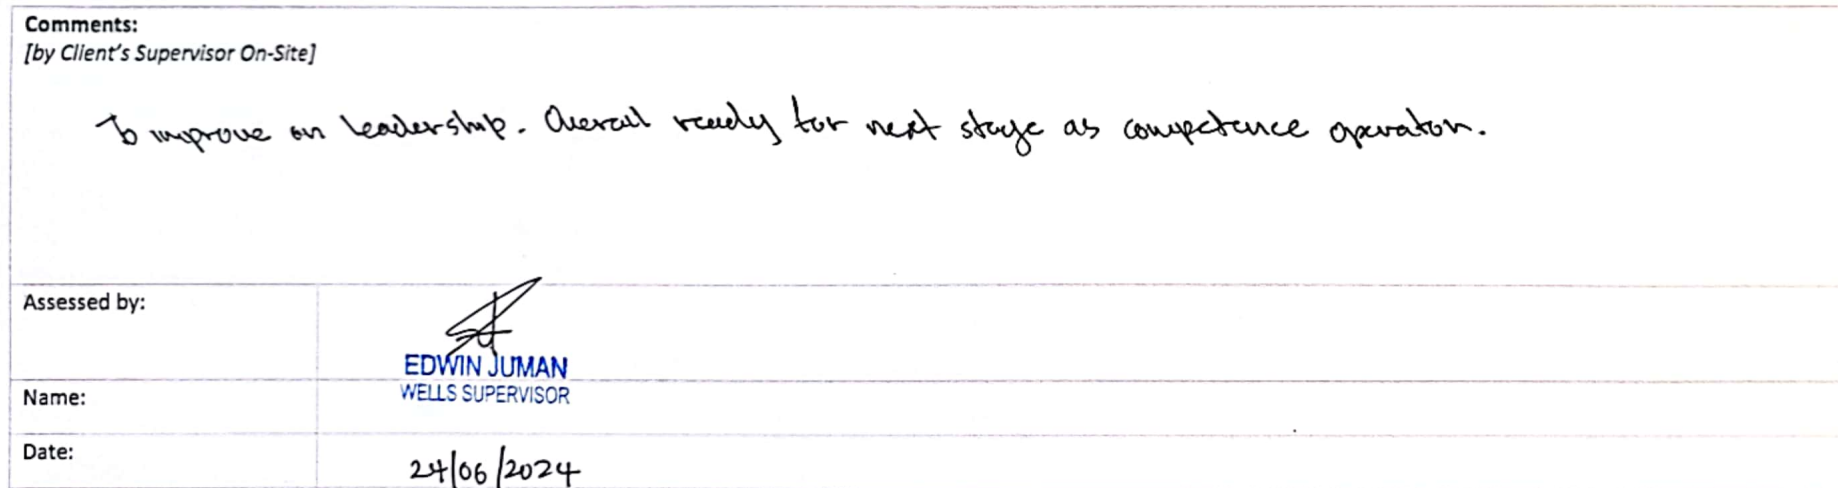 Comments:
[by Client's Supervisor On-Site]
To improve on leadership. Overall ready for next stage as competence operator.
Assessed by:
EDWIN JUMAN
Name:
WELLS SUPERVISOR
Date:
24/06/2024